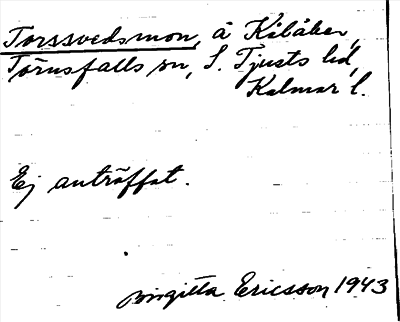 Torssvedsmon, å Kåbäcken,
Törnsfalls sn, S. Tjusts hd,
Kalmar l.
Ej anträffat.
Birgitta Ericsson 1943